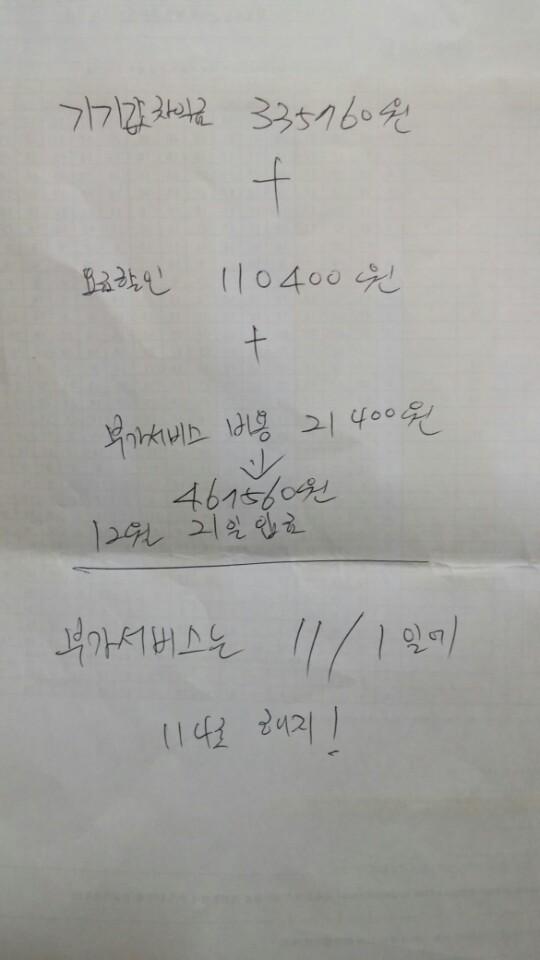 기기값 차익금 335760원
+
요금할인 110400원
+
부가서비스 비용 21400원
467560원
12월 21일 입금
부가서비스는 11/1일에
114로 해지!